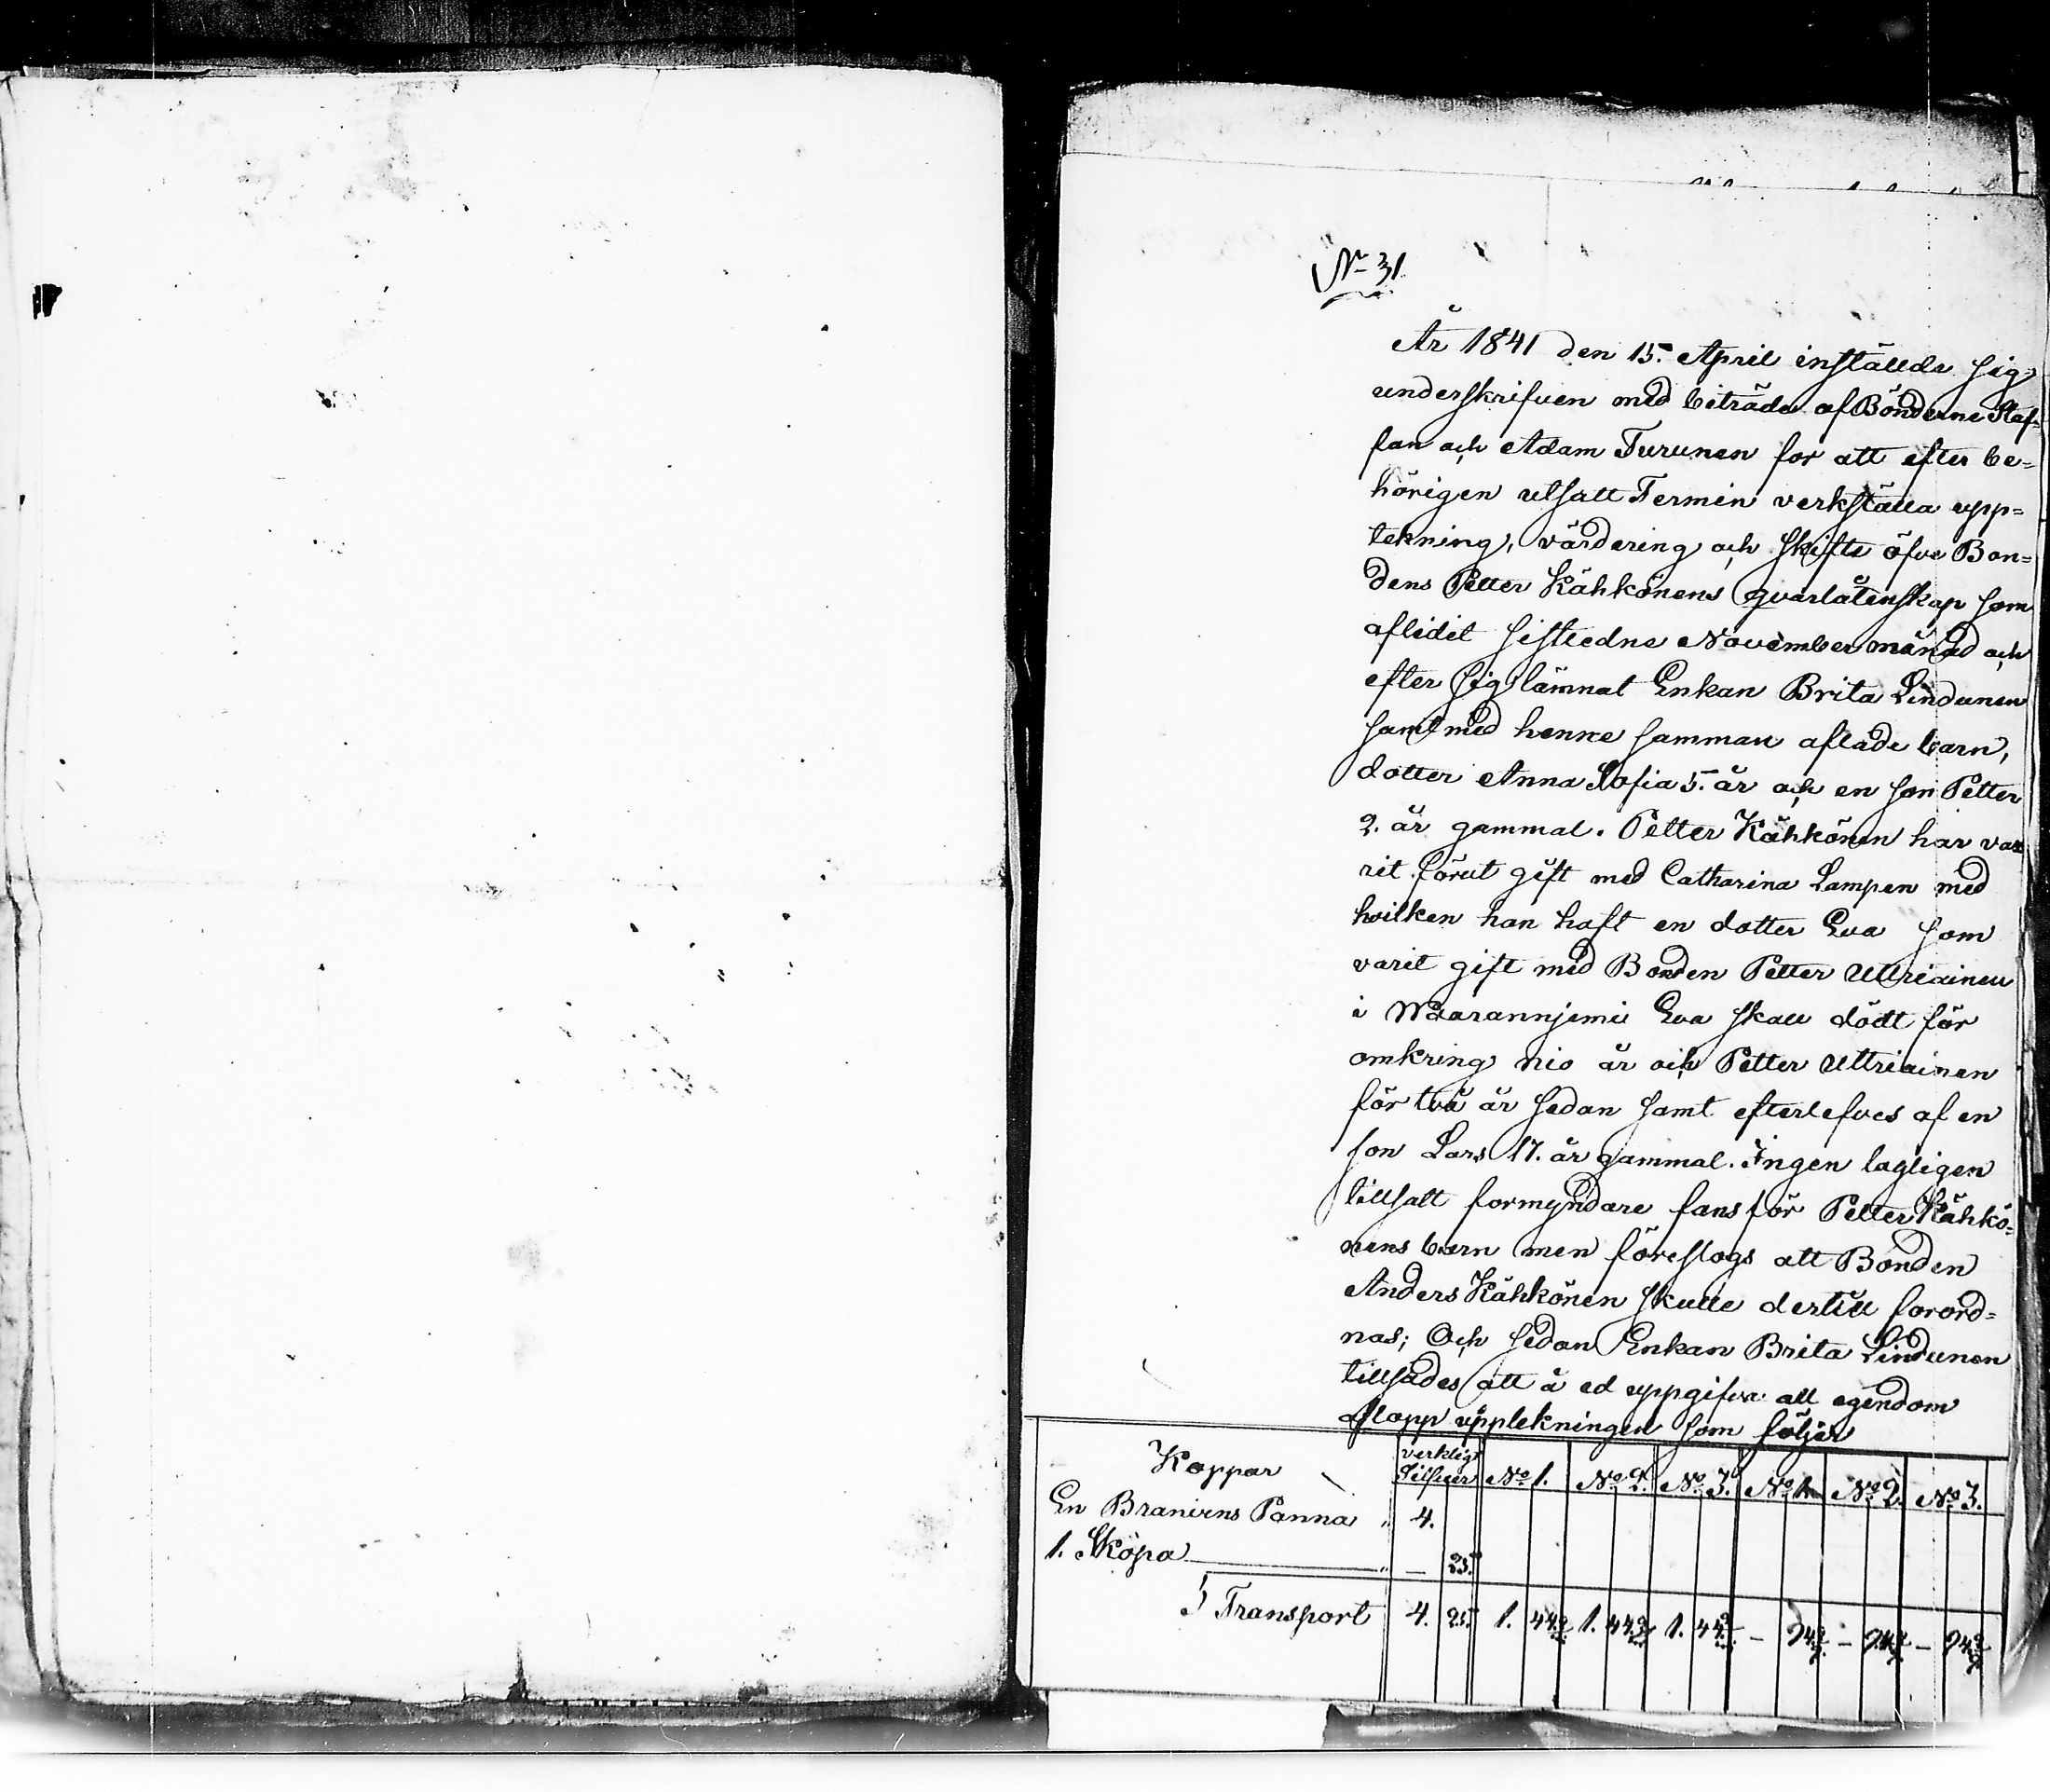 No 31
År 1841 den 15. April instälde sig
underskrifven med biträde af Bönderne Staf-
fan och Adam Turunen for att efter be=
hörigen utsatt Termin verkställa upp=
tekning, värdering och skifte öfve Bon=
dens Petter Kähkönens qvarlåtenskap som
aflidit sistledne November månad och
efter sig lämnat Enkan Brita Lindunen
samt med henne samman aflade barn,
dotter Anna Sofia 5. år och en son Petter
2. år gammal. Petter Kähkönen har va
rit förut gift med Catharina Lampen med
hvilken han haft en dotter Eva som
varit gift med Bonden Petter Uttriainen
i Waaranniemi Eva skall dödt för
omkring nio år och Petter Uttriainen
för två år sedan samt efterlefves af en
son Lars 17. år gammal. Ingen lagligen
tillsatt formyndare fans för Petter Kähkö=
nens barn men föreslogs att Bonden
Anders Kähkönen skulle dertill forord=
nas; Och sedan Enkan Brita Lindunen
tillsades att å ed uppgifva all egendom
aflopp upptekningen som följer
Koppar verkligt Silfver No 1. No 2. No 3. No 1. No 2. No 3.
En Branvins Panna " 4.
1. Skopa " — 25.
Transport 4. 25. 1. 44 2/ 1. 44 2/ 1. 44 2/ — 94 2/ — 94 2/ — 94 2/